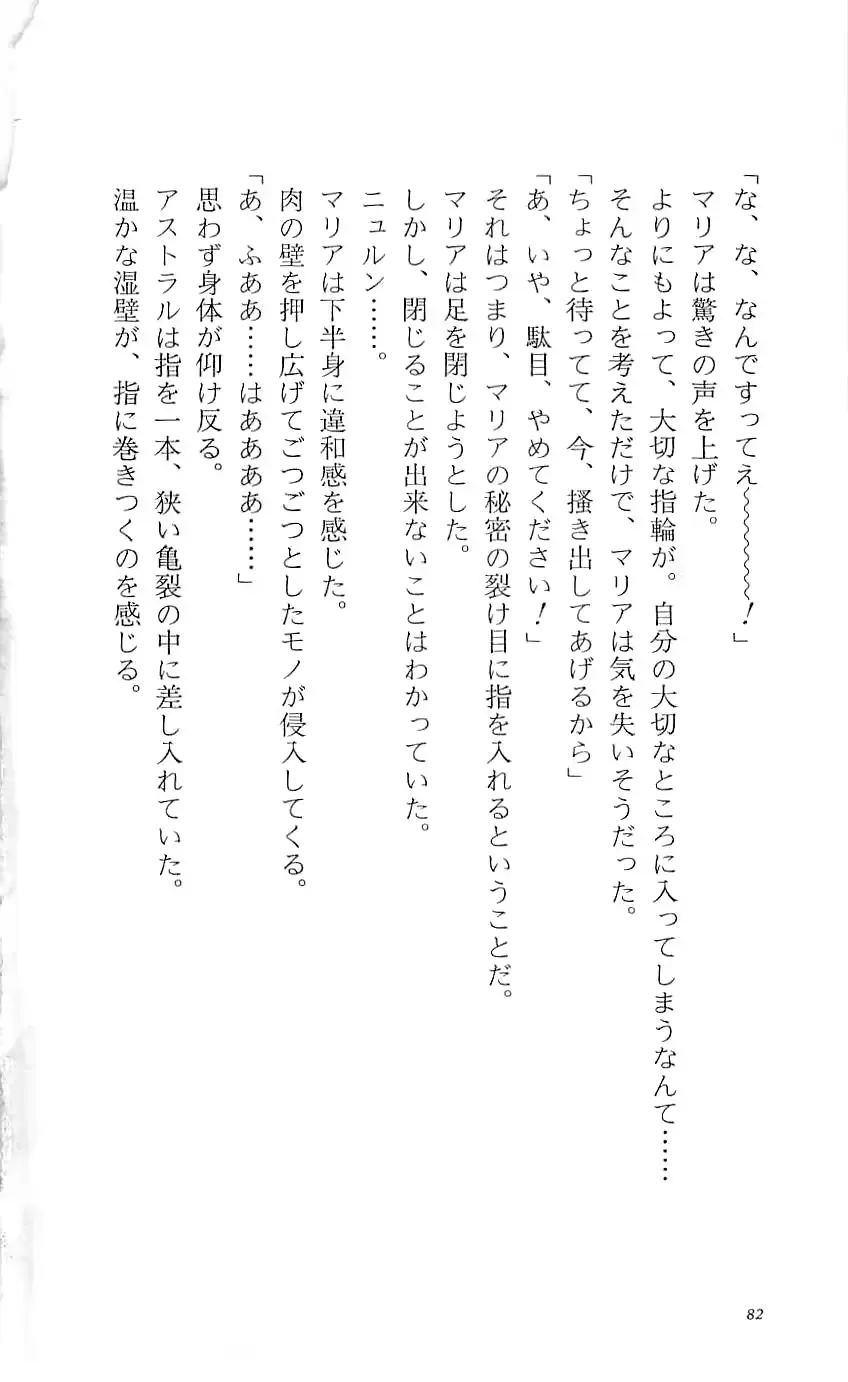 「な、な、なんですってえ～～～～～！」
マリアは驚きの声を上げた。
よりにもよって、大切な指輪が。自分の大切なところに入ってしまうなんて……
そんなことを考えただけで、マリアは気を失いそうだった。
「ちょっと待ってて、今、掻き出してあげるから」
「あ、いや、駄目、やめてください！」
それはつまり、マリアの秘密の裂け目に指を入れるということだ。
マリアは足を閉じようとした。
しかし、閉じることが出来ないことはわかっていた。
ニュルン……。
マリアは下半身に違和感を感じた。
肉の壁を押し広げてごつごつとしたモノが侵入してくる。
「あ、ふああ……はああああ……」
思わず身体が仰け反る。
アストラルは指を一本、狭い亀裂の中に差し入れていた。
温かな湿壁が、指に巻きつくのを感じる。
82